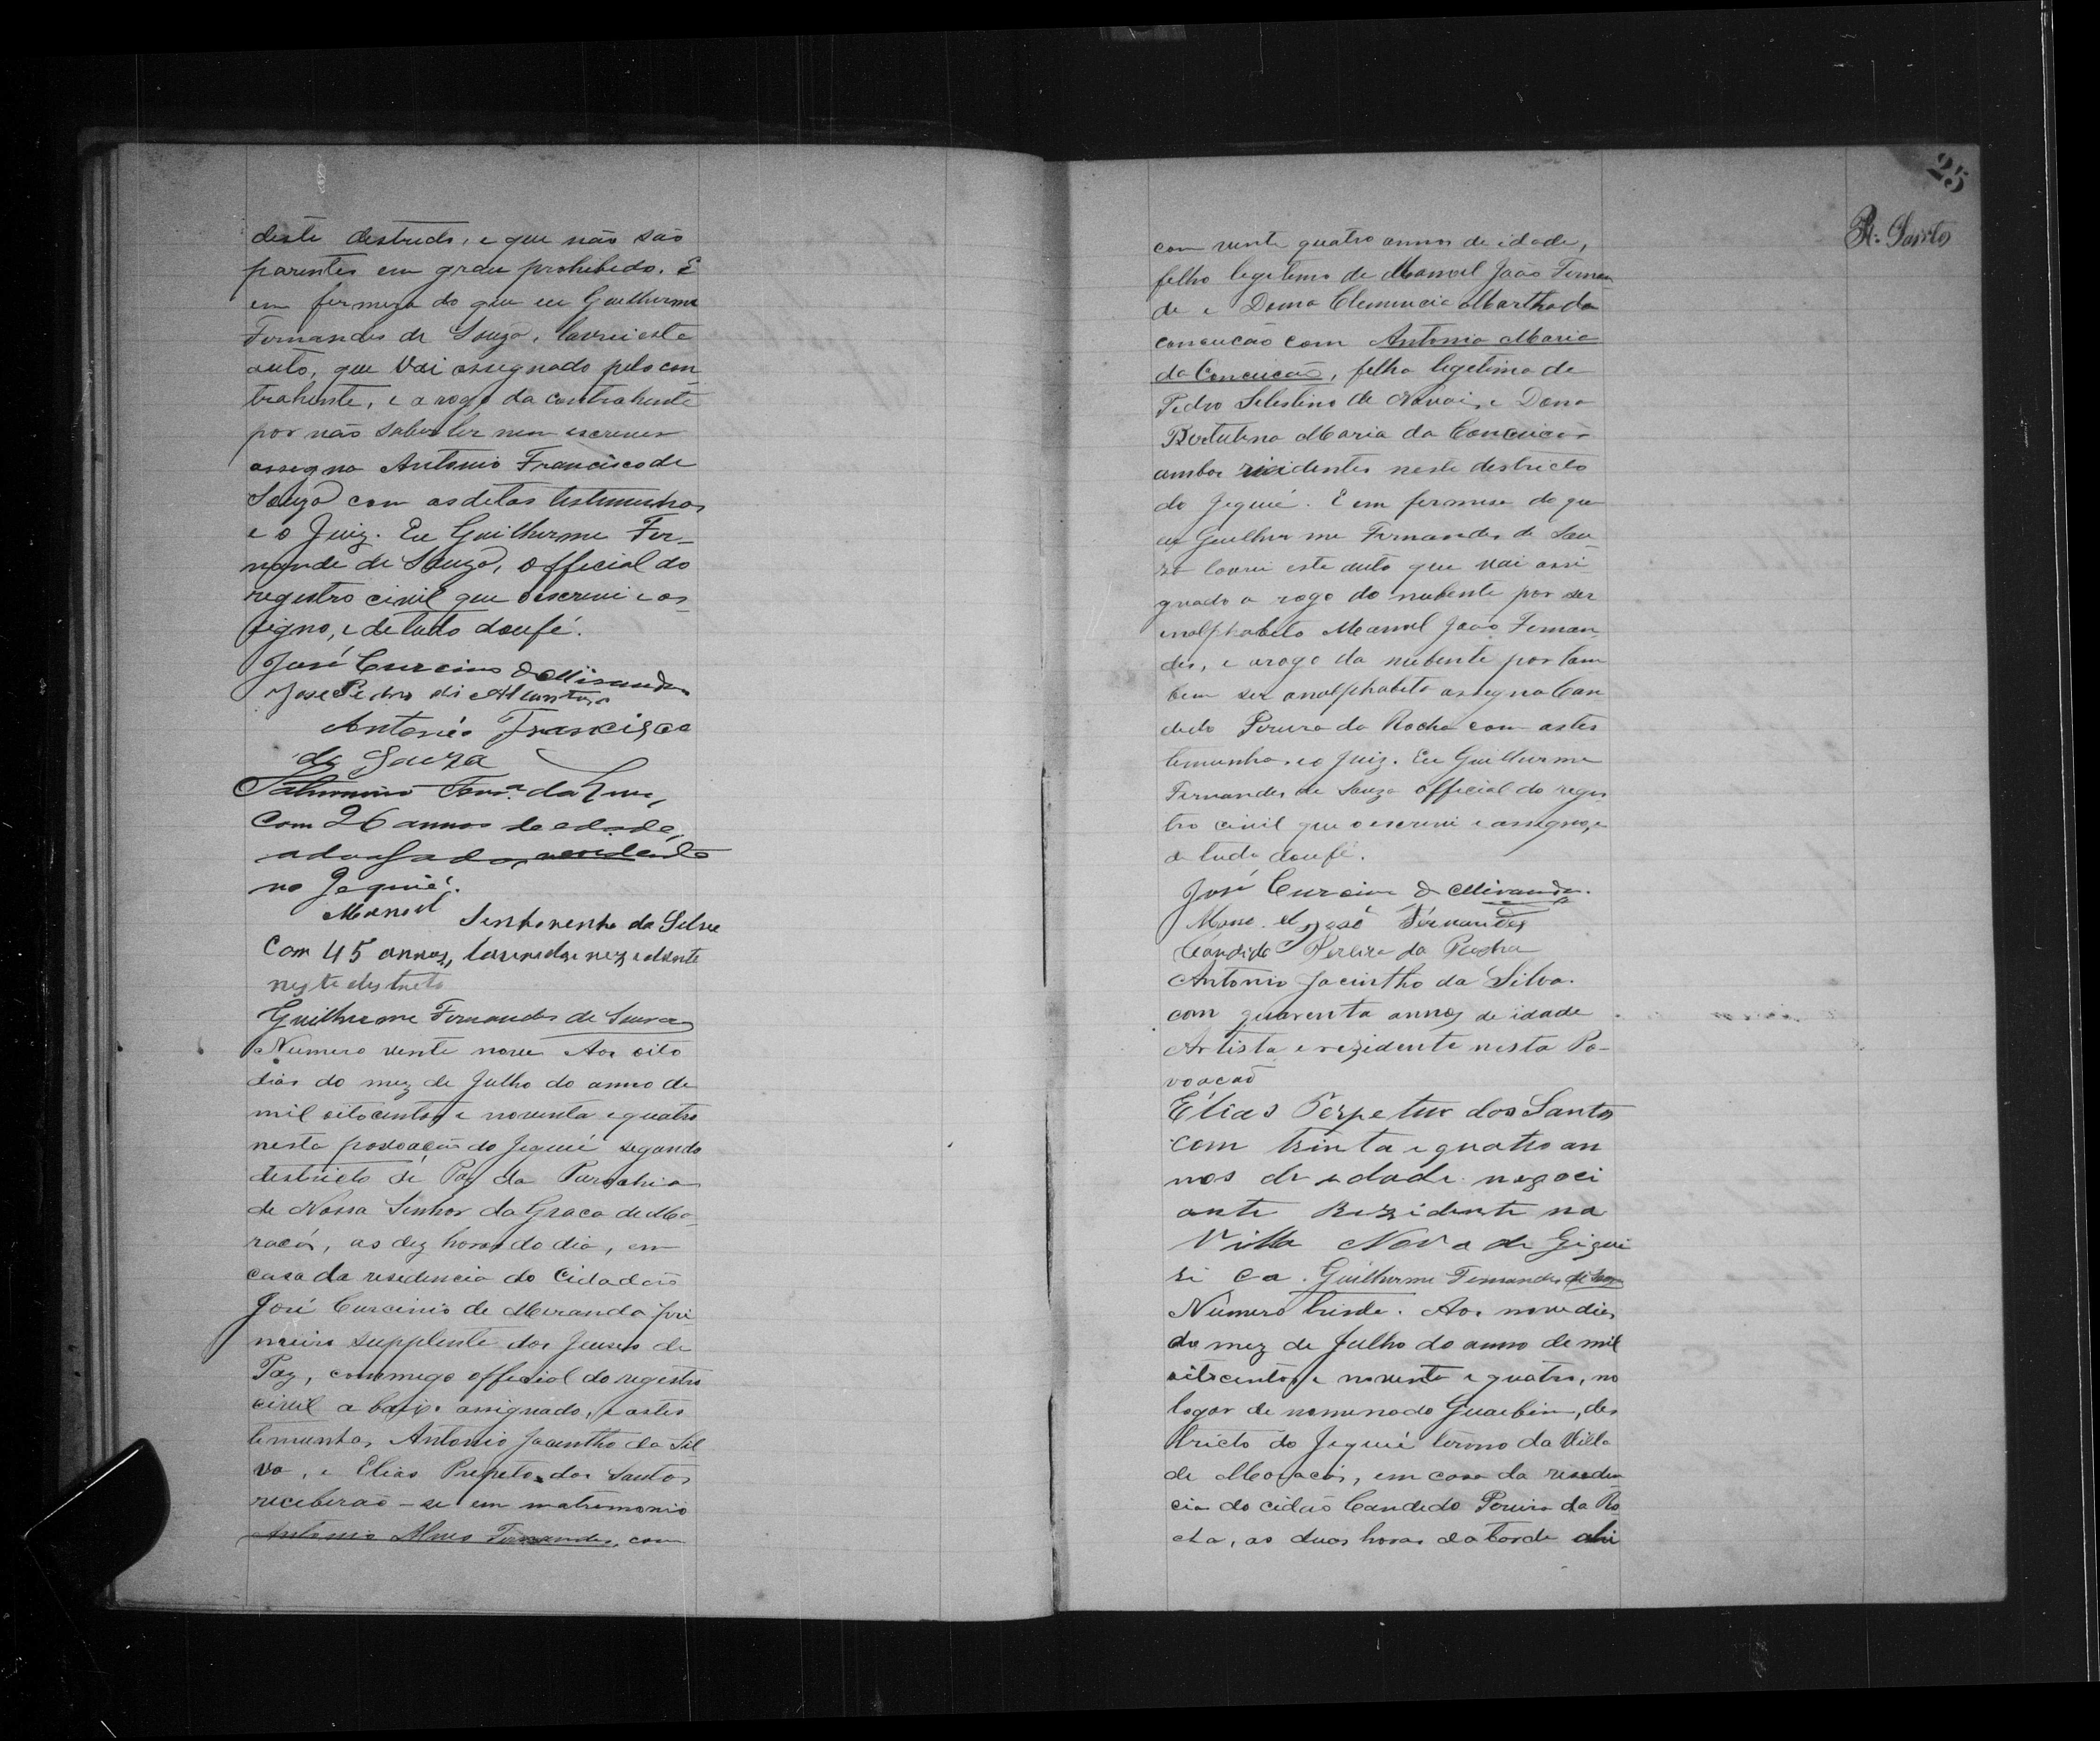 deste destricto, e que não são
parentes em grau prohebido. E
em fermeza do que eu Guilherme
Fernandes de Souza, lavrei este
auto, que vai assegnado pelo con
trahente, e a rogo da contrahente
por não saber ler nem escrever
assegna Antonio Francisco de
Souza com as detas testemunhas
e o Juiz. Eu Guilherme Fer-
nande de Souza, official do
registro civil que o escrevi e as
signo, e de tudo dou fé.
José Curcino de Miranda
José Pedro di Alcantara
Antonio Francisco
de Souza
Saturnino da
com 26 annos de edade,
advogado, residente
no Jequié.
Manoel da Silva
Com 45 annos, lavrador rezedente
neste destreto
Guilherme Fernandes de Souza
Numero vente nove Aos oito
dias do mez de Julho do anno de
mil oitocentos e noventa e quatro
nesta povoação do Jequié segundo
destricto de Paz da Parochia
de Nossa Senhor da Graca de Ma-
racás, as dez horas do dia, em
casa da resedencia do Cidadão
José Curcinio de Meranda pri
meiro supplente dos Juises de
Paz, commego offecial do registro
civil a baixo assignado, e as tes
temunhas, Antonio Jacintho da Sil
va, e Elias Prepeto dos Santos
receberão-se em matremonio
Antonio Alves Fernandes, com
25
R. Santo
com vente quatro annos de idade,
felho legetimo de Manoel João Fernan
de e Dona Clemencia Martha da
conceicão com Antonia Maria
da Conceicão, felha legetima de
Pedro Selestino de Novais, e Dona
Bertulina Maria da Conceicão
ambos rezidentes neste destricto
do Jequié. E em fermesa do que
eu Guelherme Fernandes de Sou
za lavrei este auto que vai assi
gnado a rogo do nubente por ser
analphabeto Manoel João Fernan
des, e a rogo da nubente por tam
bem ser analphabeta assegna Can
dedo Pereira da Rocha com as tes
temunha, e o Juiz. Eu Guilherme
Fernandes de Souza official do regis
tro civil que o escrevi e assegno, e
de tudo dou fé.
José Curcino de Miranda.
Mano el José Fernandes
Candido Pereira da Rocha
Antonio Jacintho da Silva.
com quarenta annos de idade
Artista e rezidente nesta Po-
voacão
Elias Perpetuo dos Santos
com trinta e quatro an
nos de edade negoci
ante Rezidente na
Villa Nova de Giqui
ri ca. Guilherme Fernandes de Souza
Número trinta. Aos nove dias
do mez de Julho do anno de mil
oitocentos e noventa e quatro, no
logar de nomenado Guaebim, des
tricto do Jequié termo da Villa
de Maracás, em casa da reseden
cia do cidão Candedo Pereira da Ro
cha, as duas horas da tarde ahi